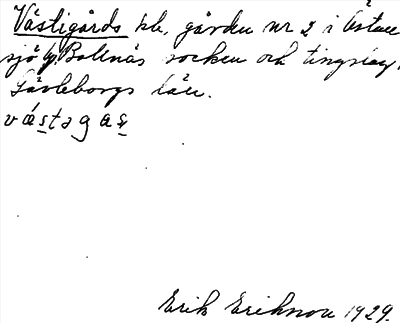 Västigårds hb, gården nr 2 i Östan
sjö by, Bollnäs socken och tingslag,
Gävleborgs län.
våstagas
Erik Eriksson 1929.